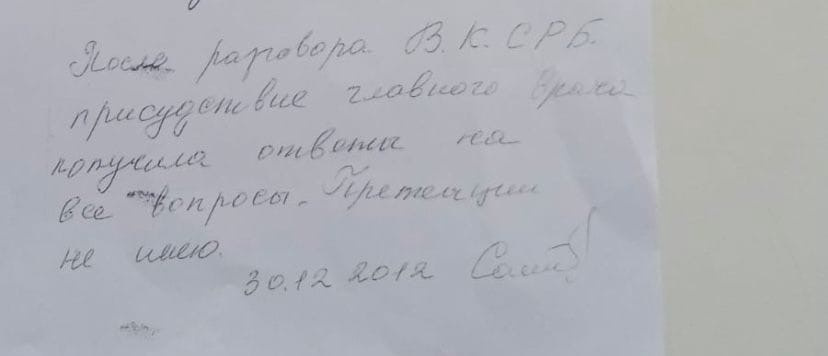 После разговора В.К.СРБ.
присудствие главного врача
получила ответы на
все вопросы. Претензции
не имею.
30.12 2012